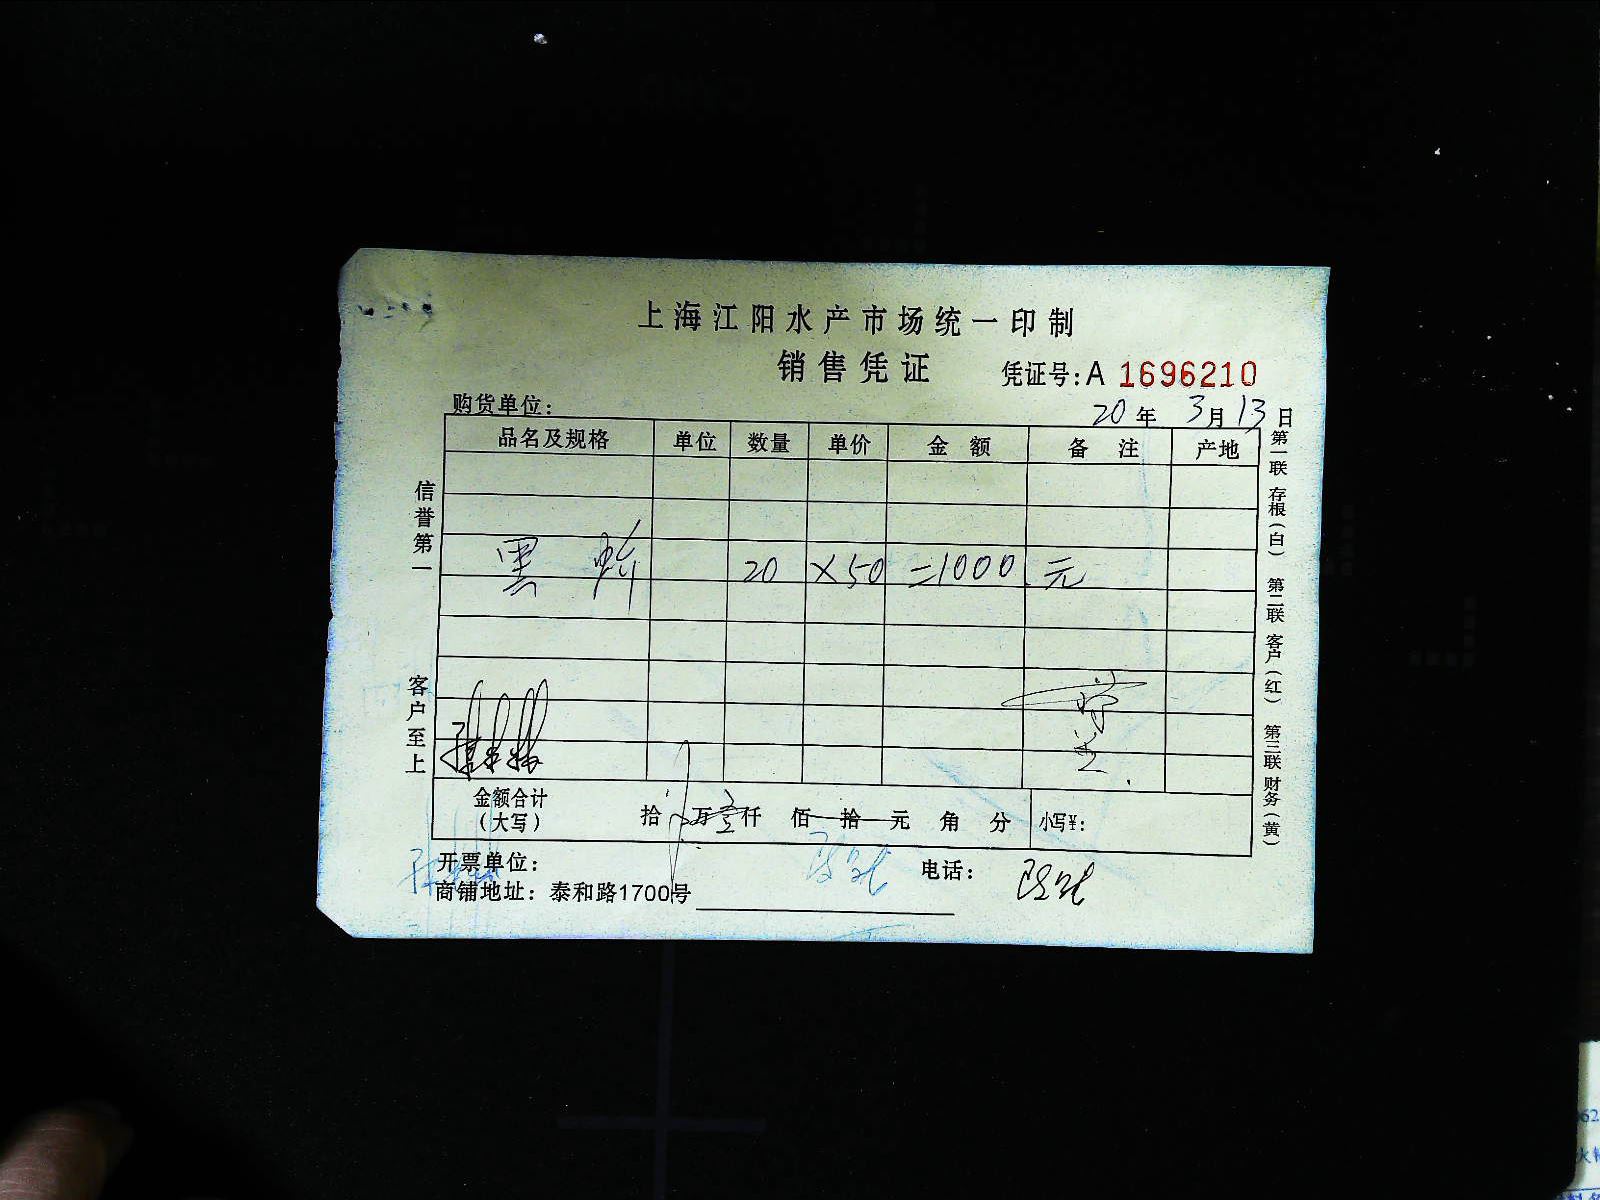 上海江阳水产市场统一印制
销售凭证
凭证号:A 1696210
购货单位:
20年 3月13日
品名及规格 单位 数量 单价 金额 备注 产地
黑 20 ×50 =1000 元
金额合计(大写) 拾 万壹仟 佰 拾 元 角 分 小写¥:
开票单位: 电话:
商铺地址: 泰和路1700号
信誉第一 客户至上
第一联 存根(白) 第二联 客户(红) 第三联 财务(黄)